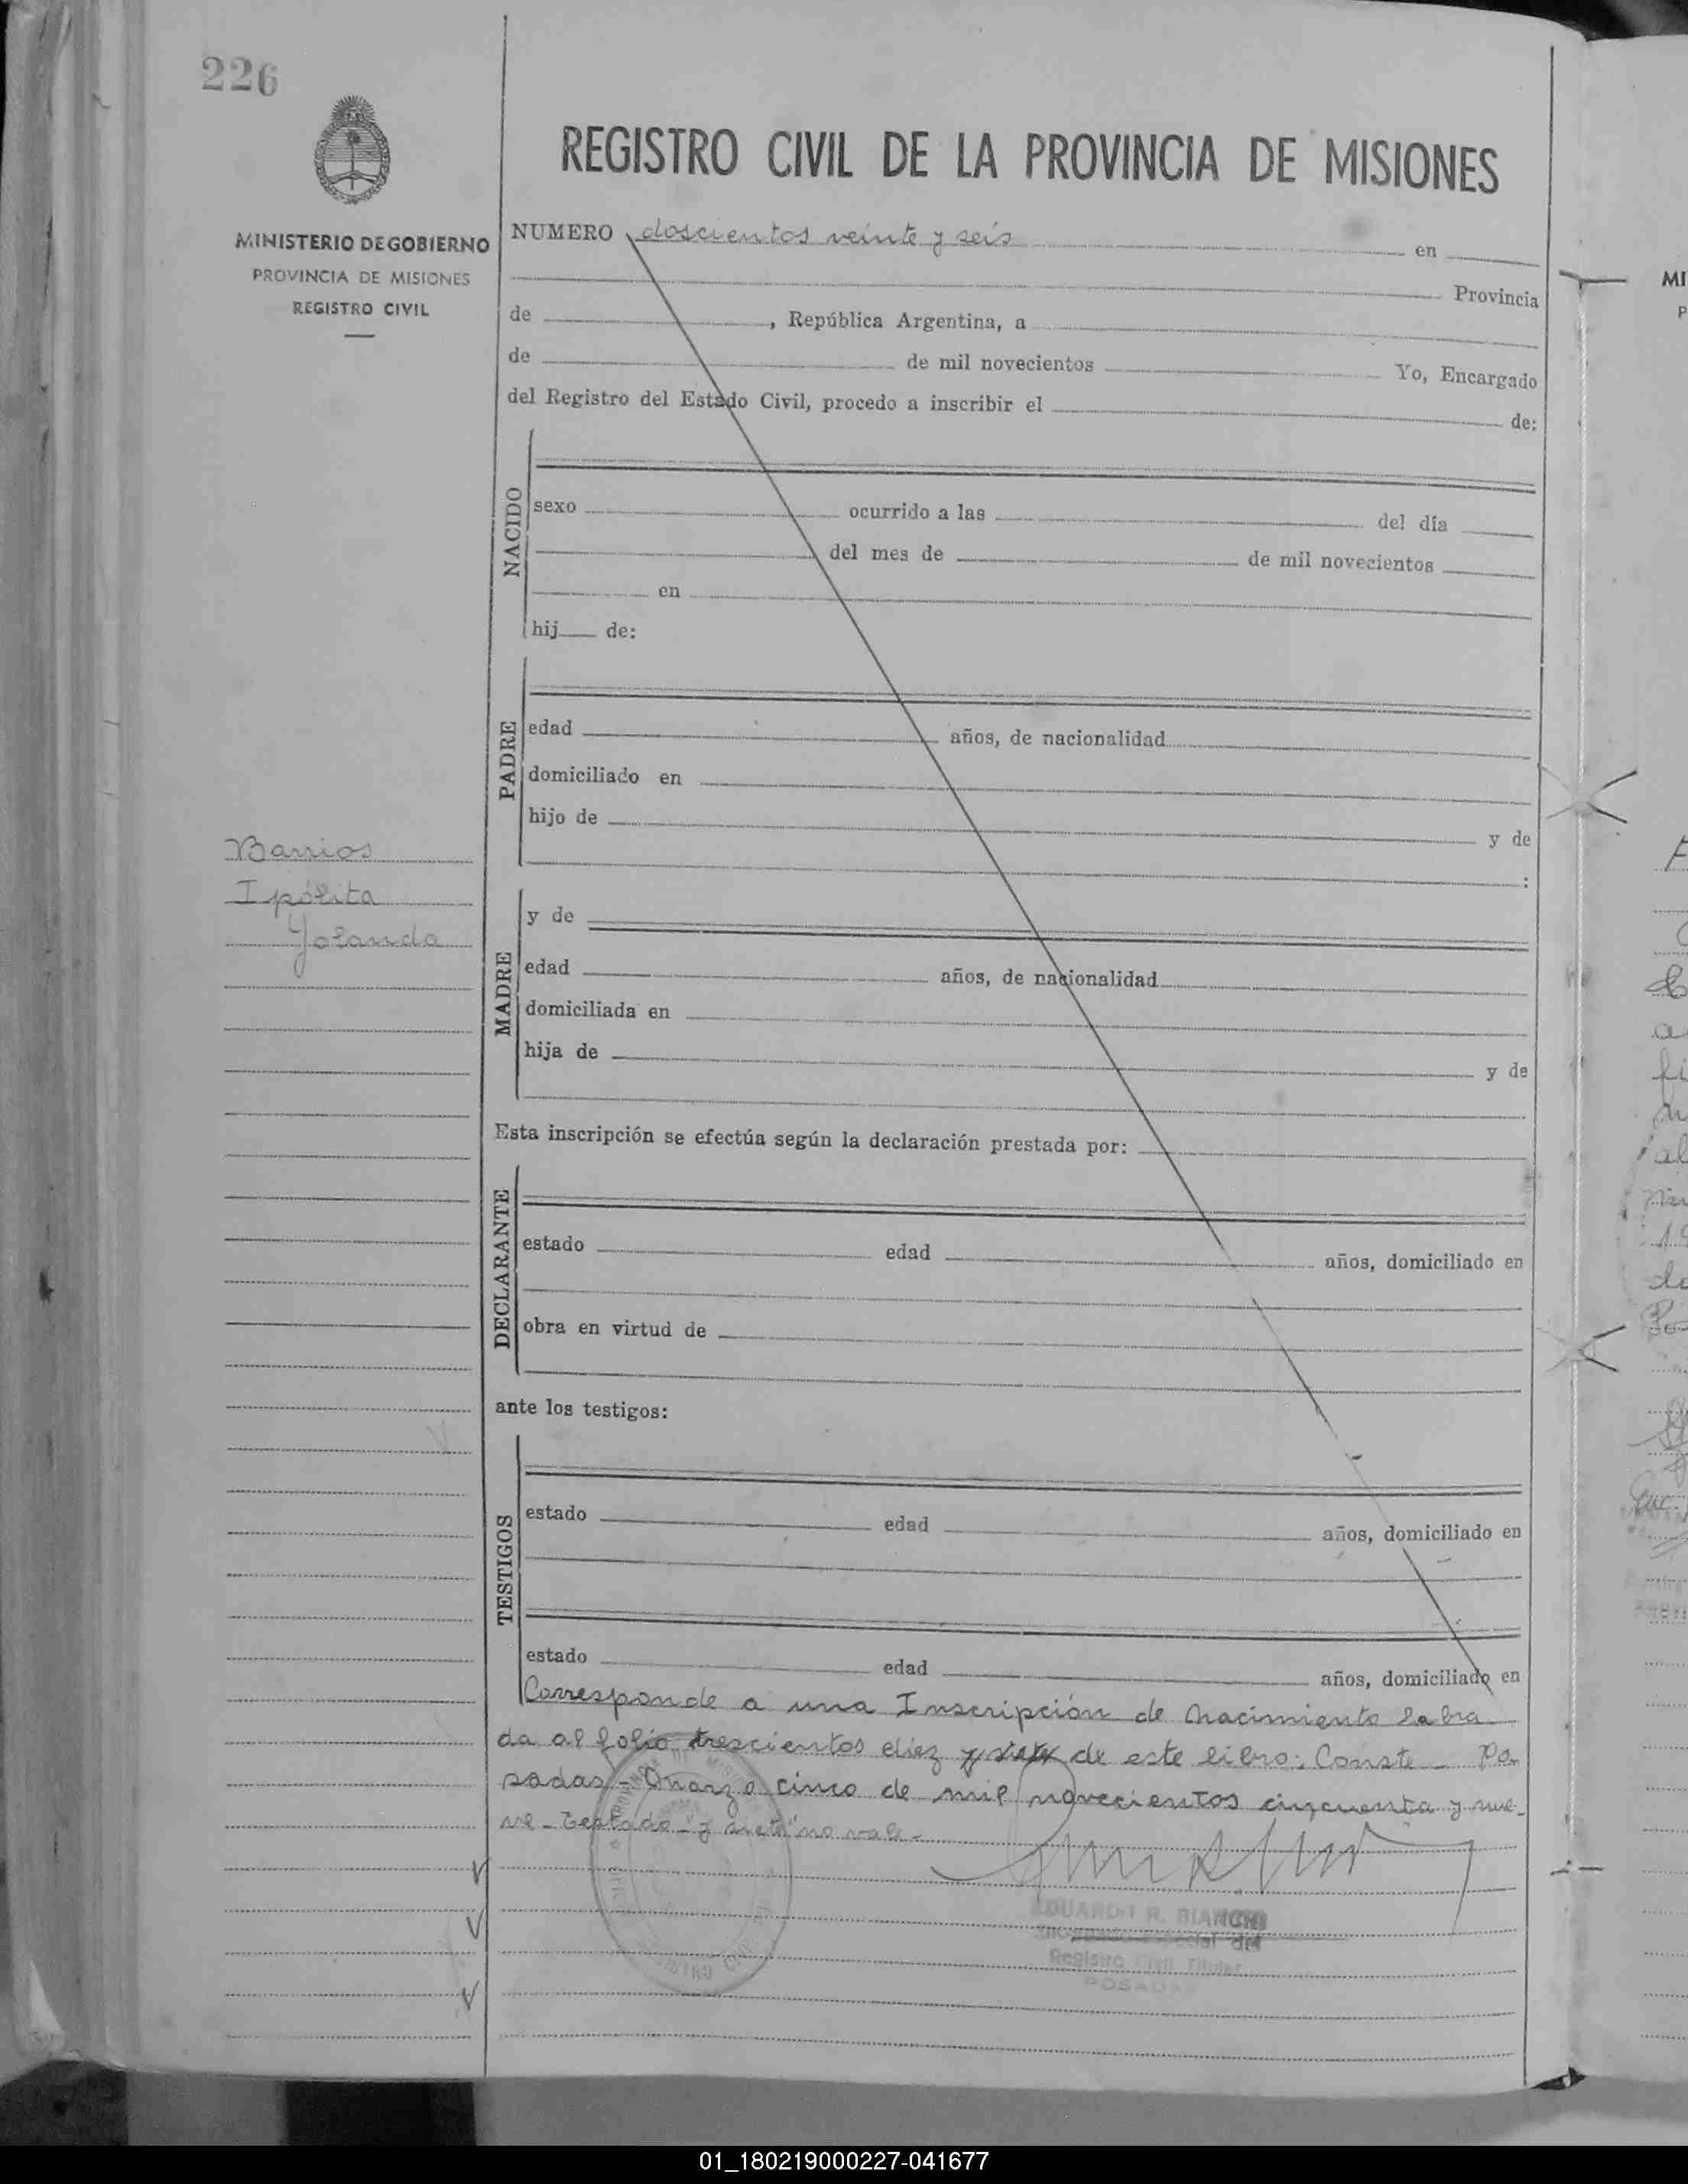 226
REGISTRO CIVIL DE LA PROVINCIA DE MISIONES
MINISTERIO DE GOBIERNO
PROVINCIA DE MISIONES
REGISTRO CIVIL
NUMERO doscientos veinte y seis en
Provincia
de , República Argentina, a
de de mil novecientos Yo, Encargado
del Registro del Estado Civil, procedo a inscribir el de:
NACIDO
sexo ocurrido a las del día
del mes de de mil novecientos
en
hij de:
PADRE
edad años, de nacionalidad
domiciliado en
hijo de y de
:
Barrios
Ipólita
Yolanda
MADRE
y de
edad años, de nacionalidad
domiciliada en
hija de y de
Esta inscripción se efectúa según la declaración prestada por:
DECLARANTE
estado edad años, domiciliado en
obra en virtud de
ante los testigos:
TESTIGOS
estado edad años, domiciliado en
estado edad años, domiciliado en
Corresponde a una Inscripción de Nacimiento labra
da al folio trescientos diez y siete de este libro; Conste - Po
sadas - Marzo cinco de mil novecientos cincuenta y nue-
ve - Testado - "y siete" no vale -
EDUARDO R. BIANCHI
Registro Civil Titular
POSADAS
01_180219000227-041677